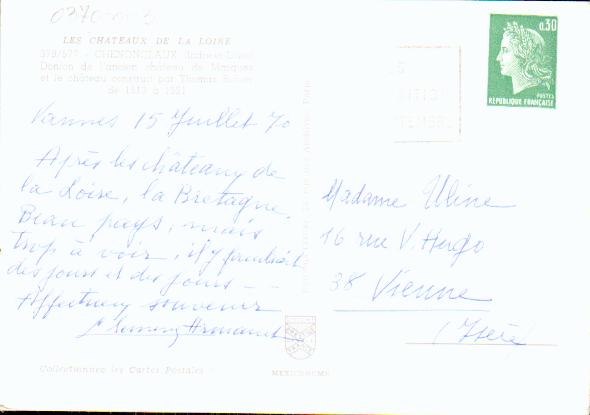 LES CHATEAUX DE LA LOIRE
378/577 - CHENONCEAUX (Indre-et-Loire)
Donjon de l'ancien château de Marques
et le château construit par Thomas Bohier
de 1513 à 1521
Vannes 15 Juillet 70
Après les châteaux de
la Loire, la Bretagne.
Beau pays, mais
trop à voir, il y faudrait
des jours et des jours - -
Affectueux souvenir
Collectionnez les Cartes Postales
MEXICHROME
0,30
POSTES
REPUBLIQUE FRANÇAISE
Madame Uline
16 rue V. Hugo
38 Vienne
(Isère)